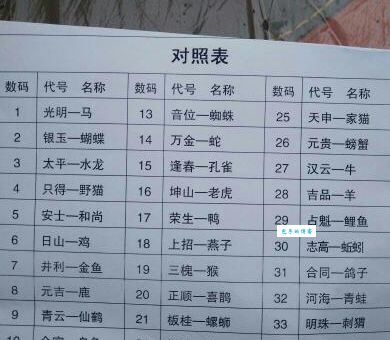 对照表
数码 代号 名称 数码 代号 名称 数码 代号 名称
1 光明—马 13 音位—蜘蛛 25 天申—家猫
2 银玉—蝴蝶 14 万金—蛇 26 元贵—螃蟹
3 太平—水龙 15 逢春—孔雀 27 汉云—牛
4 只得—野猫 16 坤山—老虎 28 吉品—羊
5 安士—和尚 17 荣生—鸭 29 占魁—鲤鱼
6 日山—鸡 18 上招—燕子 30 志高—蚯蚓
7 井利—金鱼 19 三槐—猴 31 合同—鸽子
8 元吉—鹿 20 正顺—喜鹊 32 河海—青蛙
9 青云—仙鹤 21 板桂—螺蛳 33 明珠—刺猬